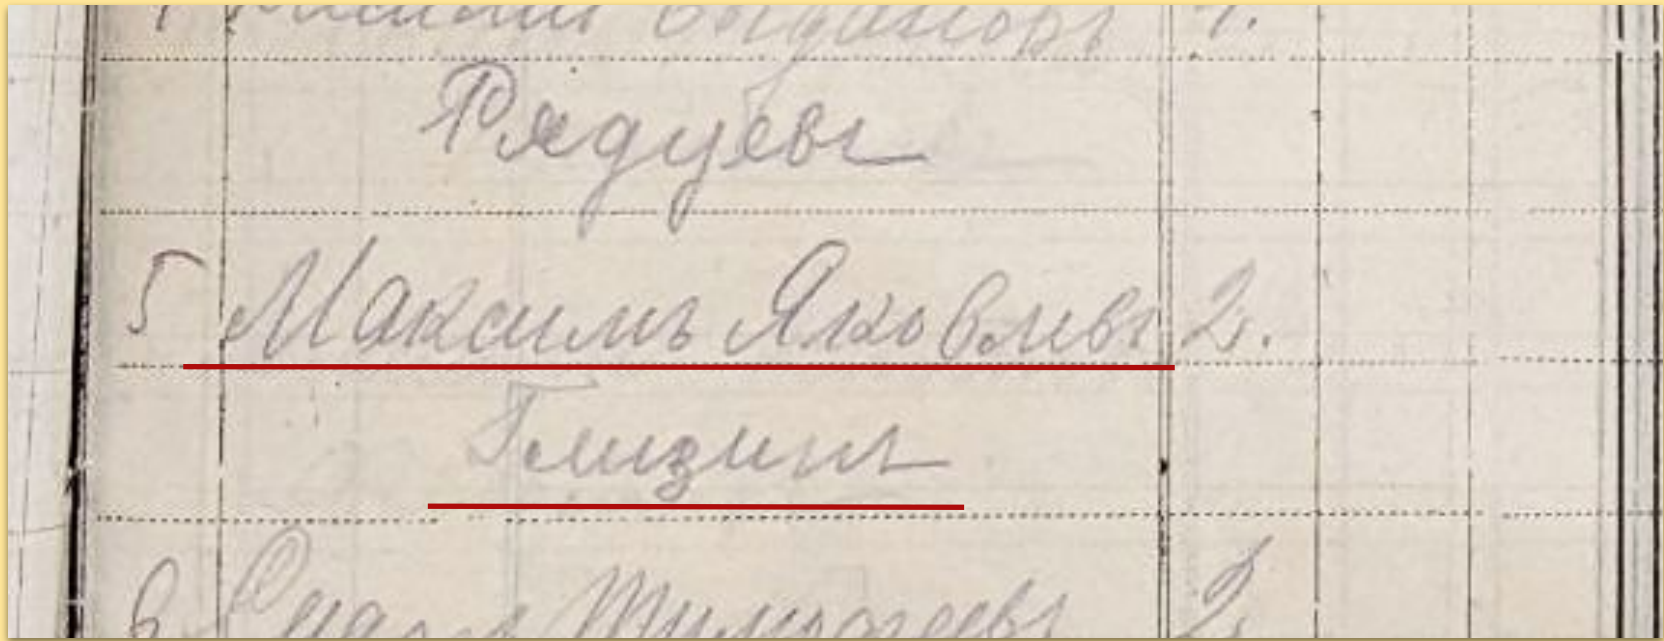 Рядуевъ
5 Максимъ Яковлевъ 2.
Глизинъ
6 Тимофеевъ 2